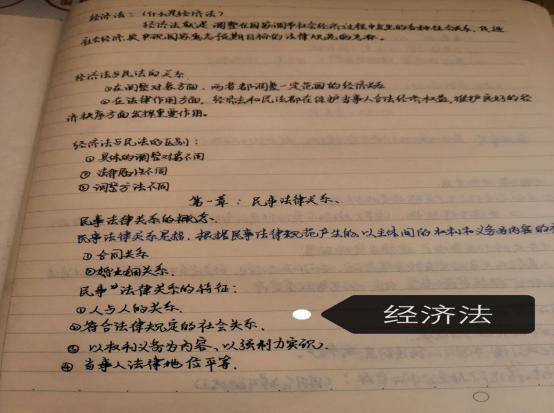 经济法：（什么是经济法）
经济法就是调整在国家调节社会经济过程中发生的各种社会关系，促进
社会经济实现国家意志预期目标的法律规范的总称。
经济法与民法的关系
①在调整对象方面，两者都调整一定范围的经济关系
②在法律作用方面，经济法和民法都在保护当事人合法经济权益，维护良好的经
济秩序方面发挥重要作用。
经济法与民法的区别：
① 具体的调整对象不同
② 法律属性不同
③ 调整方法不同
第一章：民事法律关系、
民事法律关系的概念、
民事法律关系是指，根据民事法律规范产生的，以主体间的权利和义务为内容的
① 合同关系
②婚姻关系、
民事"法律关系的特征：
①人与人的关系、
②符合法律规定的社会关系、
③ 以权利义务为内容、以强制力实现、
④ 当事人法律地位平等、
经济法